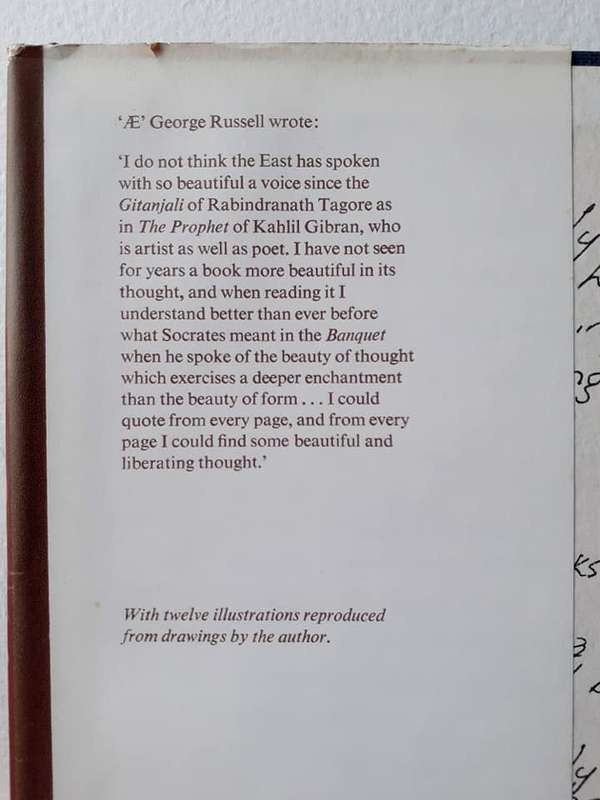 ‘Æ’ George Russell wrote:
‘I do not think the East has spoken
with so beautiful a voice since the
Gitanjali of Rabindranath Tagore as
in The Prophet of Kahlil Gibran, who
is artist as well as poet. I have not seen
for years a book more beautiful in its
thought, and when reading it I
understand better than ever before
what Socrates meant in the Banquet
when he spoke of the beauty of thought
which exercises a deeper enchantment
than the beauty of form . . . I could
quote from every page, and from every
page I could find some beautiful and
liberating thought.’
With twelve illustrations reproduced
from drawings by the author.